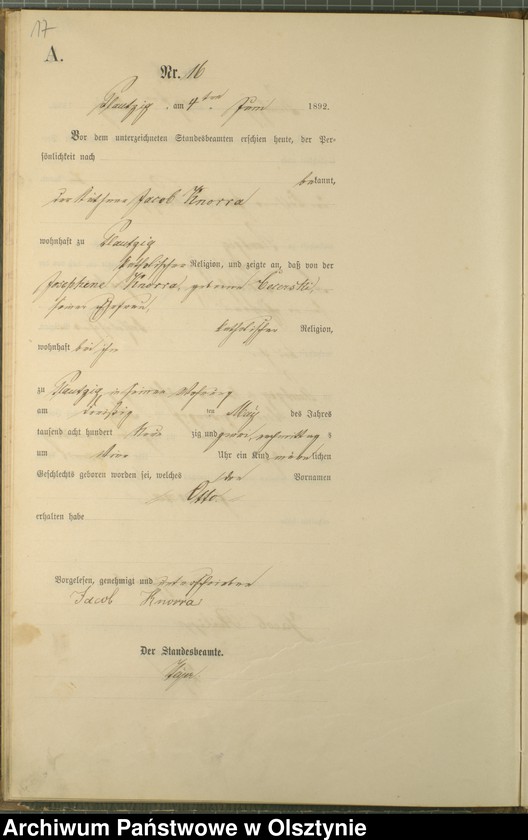 17
A.
Nr. 16
Plautzig, am 4ten Juni 1892.
Vor dem unterzeichneten Standesbeamten erschien heute, der Per-
sönlichkeit nach
bekannt,
der Käthner Jacob Knorra
wohnhaft zu Plautzig
katholischer Religion, und zeigte an, daß von der
Josephine Knorra, geborene
seiner Ehefrau,
katholischer Religion,
wohnhaft bei ihm
zu Plautzig in seiner Wohnung
am dreißig im May des Jahres
tausend acht hundert neun zig und zwei, nachmittag s
um Uhr ein Kind männlichen
Geschlechts geboren worden sei, welches den Vornamen
Otto
erhalten habe
Vorgelesen, genehmigt und unterschrieben
Jacob Knorra
Der Standesbeamte.
Archiwum Państwowe w Olsztynie